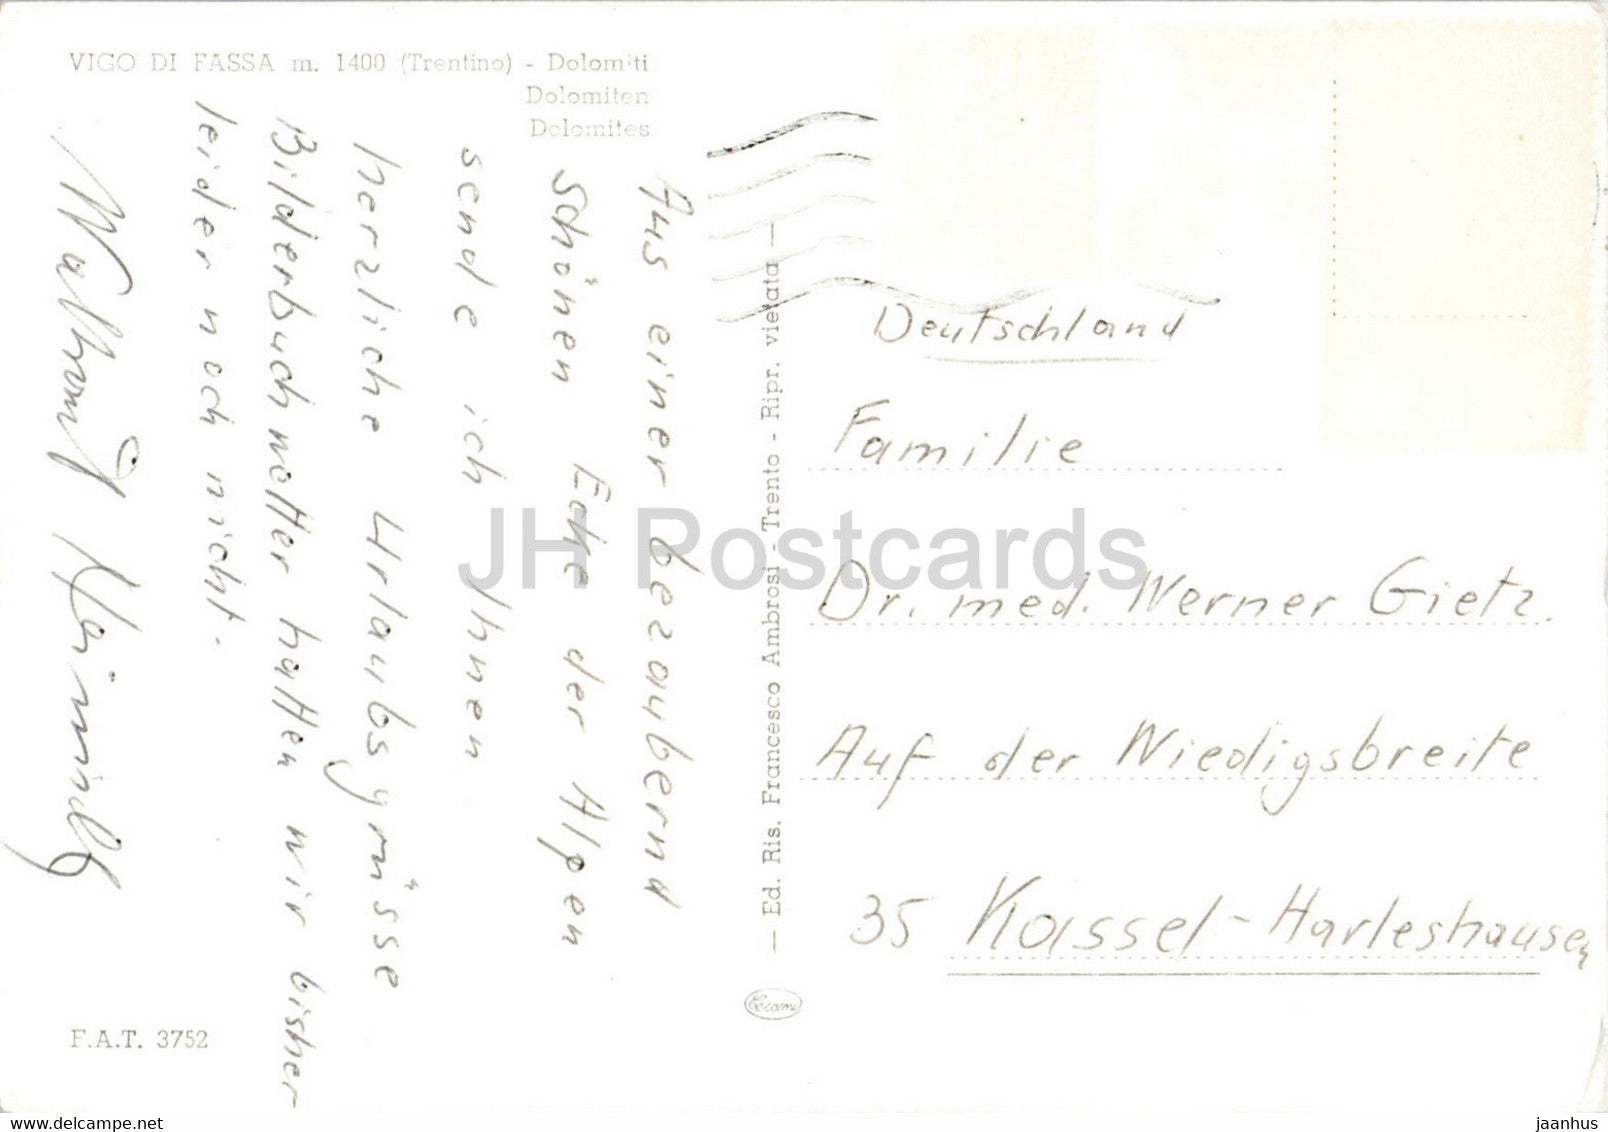 VIGO DI FASSA m. 1400 (Trentino) - Dolomiti
Dolomiten
Dolomites
Aus einer bezaubernd
schönen Ecke der Alpen
sende ich Ihnen
herzliche Urlaubsgrüsse
Bilderbuchwetter hatten wir bisher
leider noch nicht.
— Ed. Ris. Francesco Ambrosi - Trento - Ripr. vietata —
Deutschland
Familie
Dr. med. Werner Gietz.
Auf der Wiedigsbreite
35 Kassel-Harleshausen
Cecami
F.A.T. 3752
JH Postcards
www.delcampe.net
jaanhus